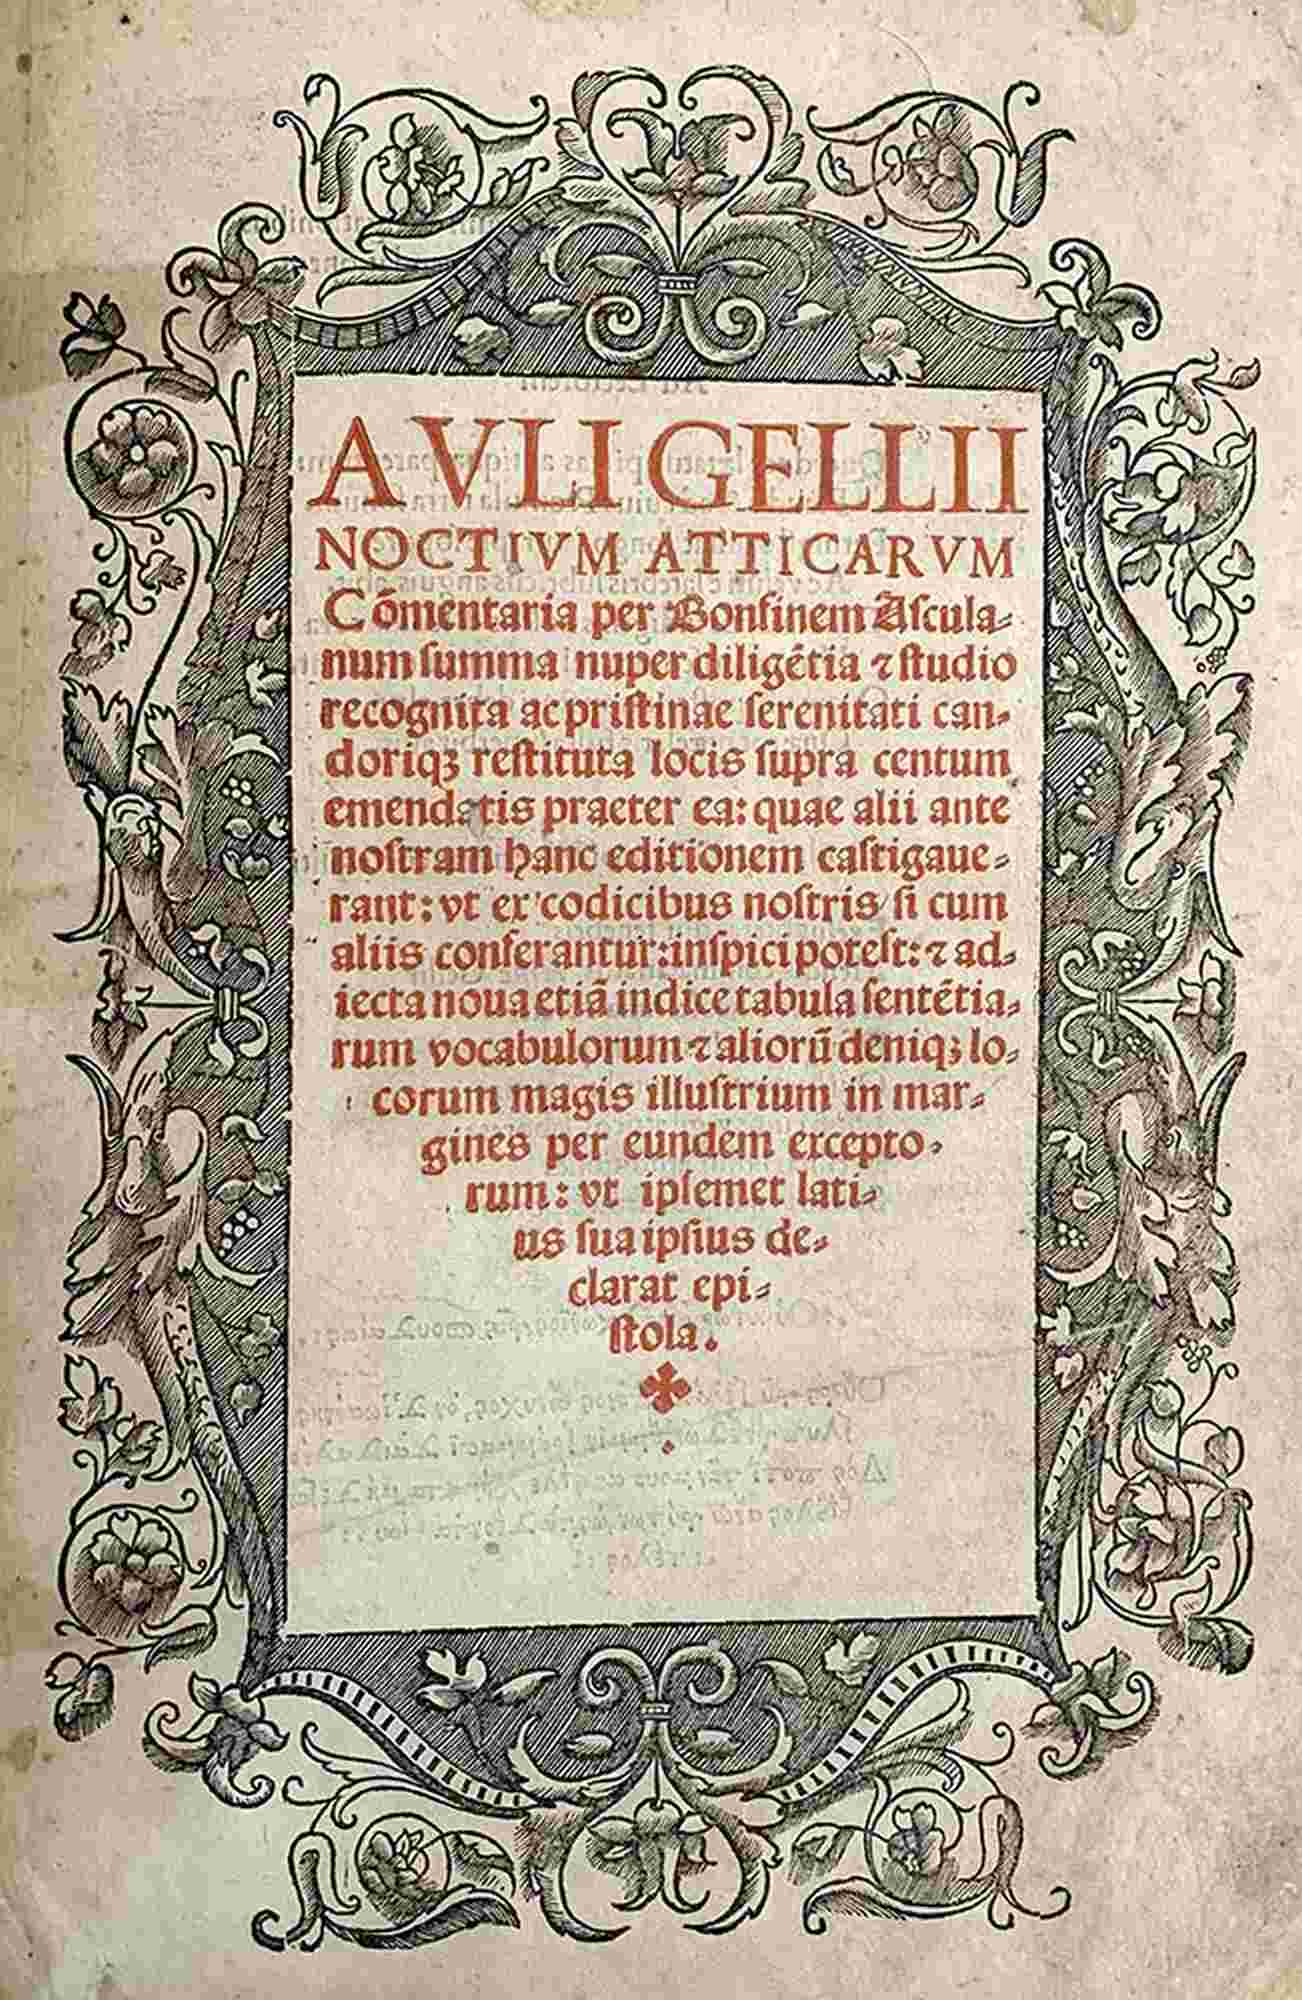 AVLI GELLII
NOCTIVM ATTICARVM
Cōmentaria per Bonfinem Aſcula-
num ſumma nuper diligētia ⁊ ſtudio
recognita ac priſtinae ſerenitati can-
doriqꝫ reſtituta locis ſupra centum
emendatis praeter ea: quae alii ante
noſtram hanc editionem caſtigaue-
rant: vt ex codicibus noſtris ſi cum
aliis conferantur: inſpici poteſt: ⁊ ad-
iecta noua etiā indice tabula ſentētia-
rum vocabulorum ⁊ aliorū deniqꝫ lo-
corum magis illuſtrium in mar-
gines per eundem excepto-
rum: vt ipſemet lati-
us ſua ipſius de-
clarat epi-
ſtola.